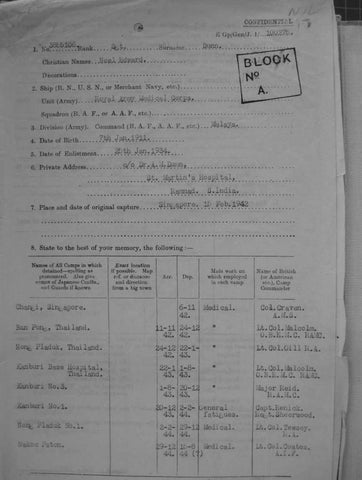 CONFIDENTIAL
E Gp/Gen/J.1/ 100275.
BLOCK
No
A.
1. No. Rank Sgt. Surname Dunn.
Christian Names Noel Edward.
Decorations
2. Ship (R. N., U. S. N., or Merchant Navy, etc.)
Unit (Army). Royal Army Medical Corps.
Squadron (R. A. F., or A. A. F., etc.)
3. Division (Army). Command (R. A. F., A. A. F., etc.) Malaya.
4. Date of Birth 7th Jan. 1911.
5. Date of Enlistment 25th Jan. 1934.
6. Private Address c/o Dr.A.M.Dunn,
St. Martin's Hospital,
Ramnad. S.India.
7. Place and date of original capture Singapore. 15 Feb.1942
8. State to the best of your memory, the following :—
Names of All Camps in which detained—spelling as pronounced. Also give names of Japanese Comdts. and Guards if known
Exact location if possible. Map ref. or distance and direction from a big town
Arr. Dep.
Main work on which employed in each camp
Name of British (or American etc.), Camp Commander
Changi, Singapore. 6-11 Medical. Col. Craven.
42. R.A.M.C.
Ban Pong, Thailand. 11-11 24-12 " Lt. Col. Malcolm.
42. 42. R.A.M.C.
Nong Pladuk, Thailand. 24-12 22-1- " Lt. Col. Gill R.A.
42. 43.
Kanburi Base Hospital, 22-1 1-8- " Lt. Col. Malcolm.
Thailand. 43. 43. R.A.M.C.
Kanburi No.3. 1-8- 20-12 " Major Reid.
43. 43 R.A.M.C.
Kanburi No.1. 20-12 2-2- General Capt. Renick.
43 44. fatigues.
Nong Pladuk No.1. 2-2- 29-12 Medical. Lt. Col. Toosey.
44. 44. R.A.
Nakom Paton. 29-12 Medical. Lt. Col. Coates.
44. 44 (?) A.I.F.